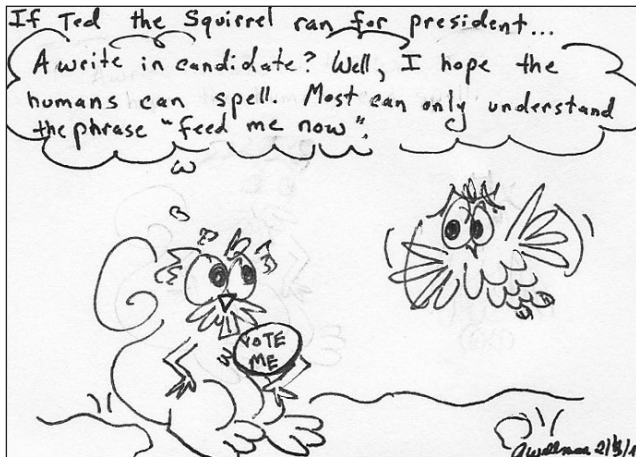 If Ted the Squirrel ran for president...
A write in candidate? Well, I hope the
humans can spell. Most can only understand
the phrase "feed me now".
VOTE
ME